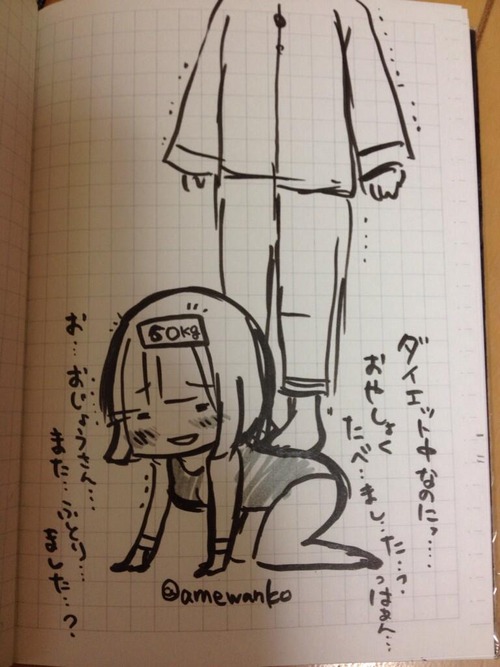 ダイエット中なのにっ…
おやしょく
たべ…まし…た…っ
っはぁん…
50kg
お…おじょうさん…
また…ふとり…ました…?
@amewanko